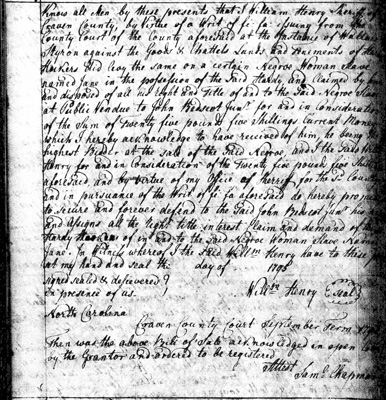 Know all Men by these presents that I William Henry Sheriff of
Craven County, by Virtue of a Writ of fi fa issuing from the
County Court of the County aforesaid at the Instance of
Styron against the Goods & Chattels Lands and Tenements of
did Levy the same on a certain Negroe Woman Slave
named Jane in the possession of the said Hardy and Claimed by
and disposed of all his right and Title of and to the Said Negroe Slave
at Public Vendue to John Bedscot Junr for and in Consideration
of the Sum of Twenty five pound five shillings Current Money
which I hereby acknowledge to have received of him, he being
highest Bidder at the sale of the Said Negroe, and I the Said
Henry for and in Consideration of the Twenty five pounds five Shill
aforesaid and by Virtue of my Office of Sherriff for the Sd County
and in pursuance of the Writ of fi fa aforesaid do hereby
to Secure and forever defend to the Said John Bedscot Junr his
and assigns all the right title interest Claim and demand of the
Hardy of in and to the said Negroe Woman Slave Named
Jane. In Witness whereof I the Said Willm Henry have to these
set my hand and seal the day of 1795
signed sealed & delivered
in presence of us. Willm Henry (Seal)
North Carolina
Craven County Court September Term
Then was the above Bill of Sale acknowledged in open
by the Grantor and ordered to be registered
Attest
Saml Chapman